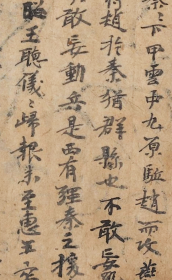 下甲雲中九原駈趙而攻燕
趙於秦猶群縣也不敢妄
敢妄動兵是西有強秦之援
王聽儀〻歸報未至惠王